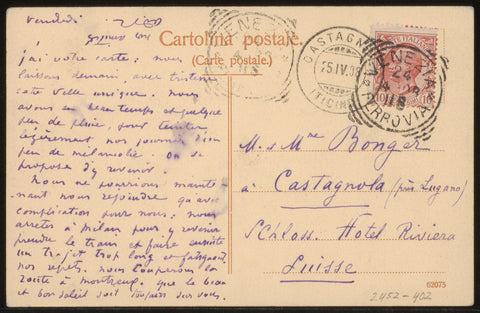 Vendredi
Cartolina postale.
(Carte postale.)
j'ai votre carte: nous
laissons demain, avec tristesse
cette ville unique. Nous
avons eu beau temps et quelque
peu de pluie, pour teinter
légèrement nos journées d'un
peu de mélancolie. On se
propose d'y revenir.
Nous ne pourrions mainte-
nant nous rejoindre qu'avec
complication pour nous: nous
arreter à Milan pour y
prendre le train et faire ensuite
un trajet trop long et fatiguant,
nos repets. nous couperons la
route à Montreux. que le beau
et bon soleil soit toujours sur vous.
CASTAGNOLA
25.IV.08
(TICINO)
VENEZIA
FERROVIA
M. & Mme Bonger
à Castagnola (près Lugano)
Schloss. Hotel Riviera
Suisse
62075
2452-402